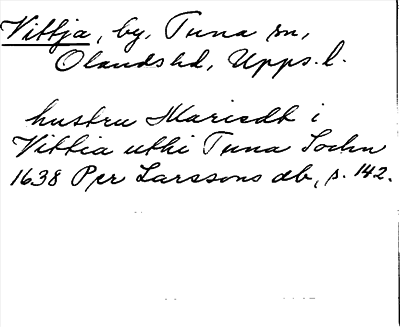 Vittja, by, Tuna sn,
Olands hd, Upps. l.
hustru Marisdt i
Vittia uthi Tuna Sochn
1638 Per Larssons db, s. 142.